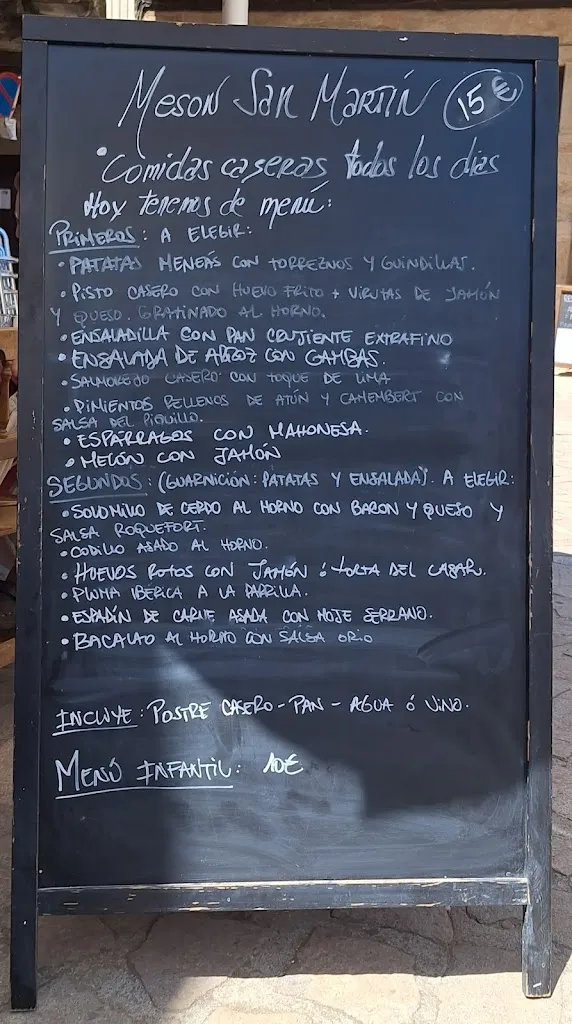 MESON SAN MARTÍN 15 €
• Comidas caseras todos los dias
Hoy tenemos de menú:
PRIMEROS: A ELEGIR:
• PATATAS MENEÁS CON TORREZNOS Y GUINDILLAS.
• PISTO CASERO CON HUEVO FRITO + VIRUTAS DE JAMÓN
Y QUESO. GRATINADO AL HORNO.
• ENSALADILLA CON PAN CRUJIENTE EXTRAFINO
• ENSALADA DE ARROZ CON GAMBAS.
• SALMOREJO CASERO CON TOQUE DE LIMA
• PIMIENTOS RELLENOS DE ATÚN Y CAMEMBERT CON
SALSA DEL PIQUILLO.
• ESPÁRRAGOS CON MAHONESA.
• MELÓN CON JAMÓN
SEGUNDOS: (GUARNICIÓN: PATATAS Y ENSALADA). A ELEGIR:
• SOLOMILLO DE CERDO AL HORNO CON BACON Y QUESO Y
SALSA ROQUEFORT.
• CODILLO ASADO AL HORNO.
• HUEVOS ROTOS CON JAMÓN ó TORTA DEL CASAR.
• PLUMA IBÉRICA A LA PARRILLA.
• ESPADÍN DE CARNE ASADA CON MOJE SERRANO.
• BACALAO AL HORNO CON SALSA ORIO
INCLUYE: POSTRE CASERO - PAN - AGUA ó VINO.
MENÚ INFANTIL: 10€